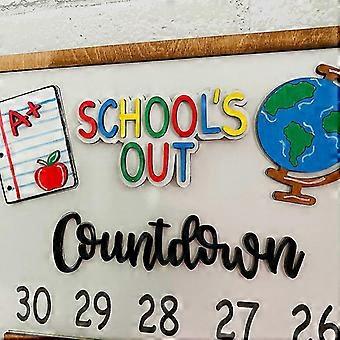 A+
SCHOOL'S
OUT
Countdown
30 29 28 27 26